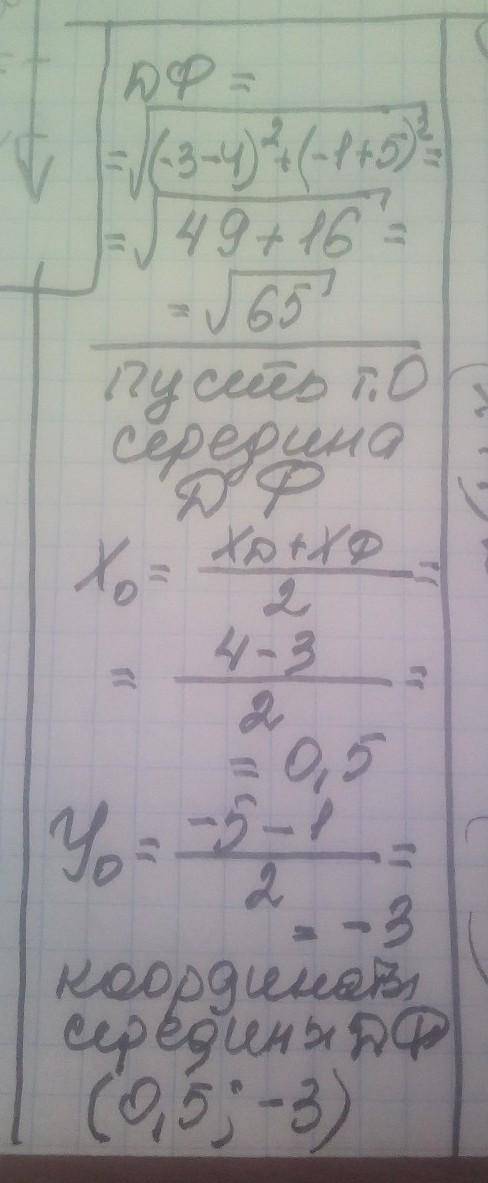 ДФ =
= √(-3-4)² + (-1+5)² =
= √49+16 =
= √65
Пусть т.О
середина
ДФ
X₀ = (XД + XФ)/2 =
= (4-3)/2 =
= 0,5
У₀ = (-5-1)/2 =
= -3
координаты
середины ДФ
(0,5; -3)